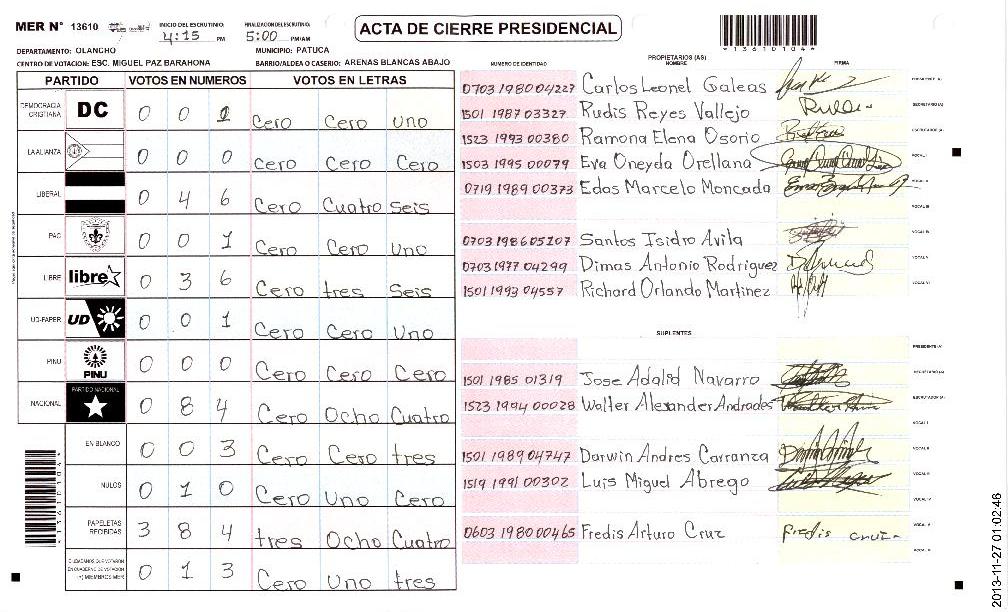 MER N° 13610
INICIO DEL ESCRUTINIO: 4:15 PM
FINALIZACION DEL ESCRUTINIO: 5:00 PM/AM
ACTA DE CIERRE PRESIDENCIAL
*13610104*
DEPARTAMENTO: OLANCHO
MUNICIPIO: PATUCA
CENTRO DE VOTACION: ESC. MIGUEL PAZ BARAHONA
BARRIO/ALDEA O CASERIO: ARENAS BLANCAS ABAJO
PARTIDO VOTOS EN NUMEROS VOTOS EN LETRAS
DEMOCRACIA CRISTIANA DC 0 0 1 Cero Cero uno
LA ALIANZA 0 0 0 Cero Cero Cero
LIBERAL 0 4 6 Cero Cuatro Seis
PAC 0 0 1 Cero Cero Uno
LIBRE libre 0 3 6 Cero tres Seis
UD-FAPER UD 0 0 1 Cero Cero Uno
PINU PINU 0 0 0 Cero Cero Cero
NACIONAL PARTIDO NACIONAL 0 8 4 Cero Ocho Cuatro
EN BLANCO 0 0 3 Cero Cero tres
NULOS 0 1 0 Cero Uno Cero
PAPELETAS RECIBIDAS 3 8 4 tres Ocho Cuatro
CIUDADANOS QUE VOTARON EN CUADERNO DE VOTACION (+) MIEMBROS MER 0 1 3 Cero Uno tres
*13610104*
PROPIETARIOS (AS)
NUMERO DE IDENTIDAD NOMBRE FIRMA
0703 1980 04227 Carlos Leonel Galeas PRESIDENTE (A)
1501 1987 03327 Rudis Reyes Vallejo SECRETARIO (A)
1523 1993 00380 Ramona Elena Osorio ESCRUTADOR (A)
1503 1995 00079 Eva Oneyda Orellana VOCAL I
0719 1989 00373 Edas Marcelo Moncada VOCAL II
VOCAL III
0703 1986 05107 Santos Isidro Avila VOCAL IV
0703 1977 04299 Dimas Antonio Rodriguez VOCAL V
1501 1993 04557 Richard Orlando Martinez VOCAL VI
SUPLENTES
PRESIDENTE (A)
1501 1985 01319 Jose Adalid Navarro SECRETARIO (A)
1523 1994 00028 Walter Alexander Andrades ESCRUTADOR (A)
VOCAL I
1501 1989 04747 Darwin Andres Carranza VOCAL II
1519 1991 00302 Luis Miguel Abrego VOCAL III
VOCAL IV
0603 1980 00465 Fredis Arturo Cruz Fredis cruz VOCAL V
VOCAL VI
2013-11-27 01:02:46